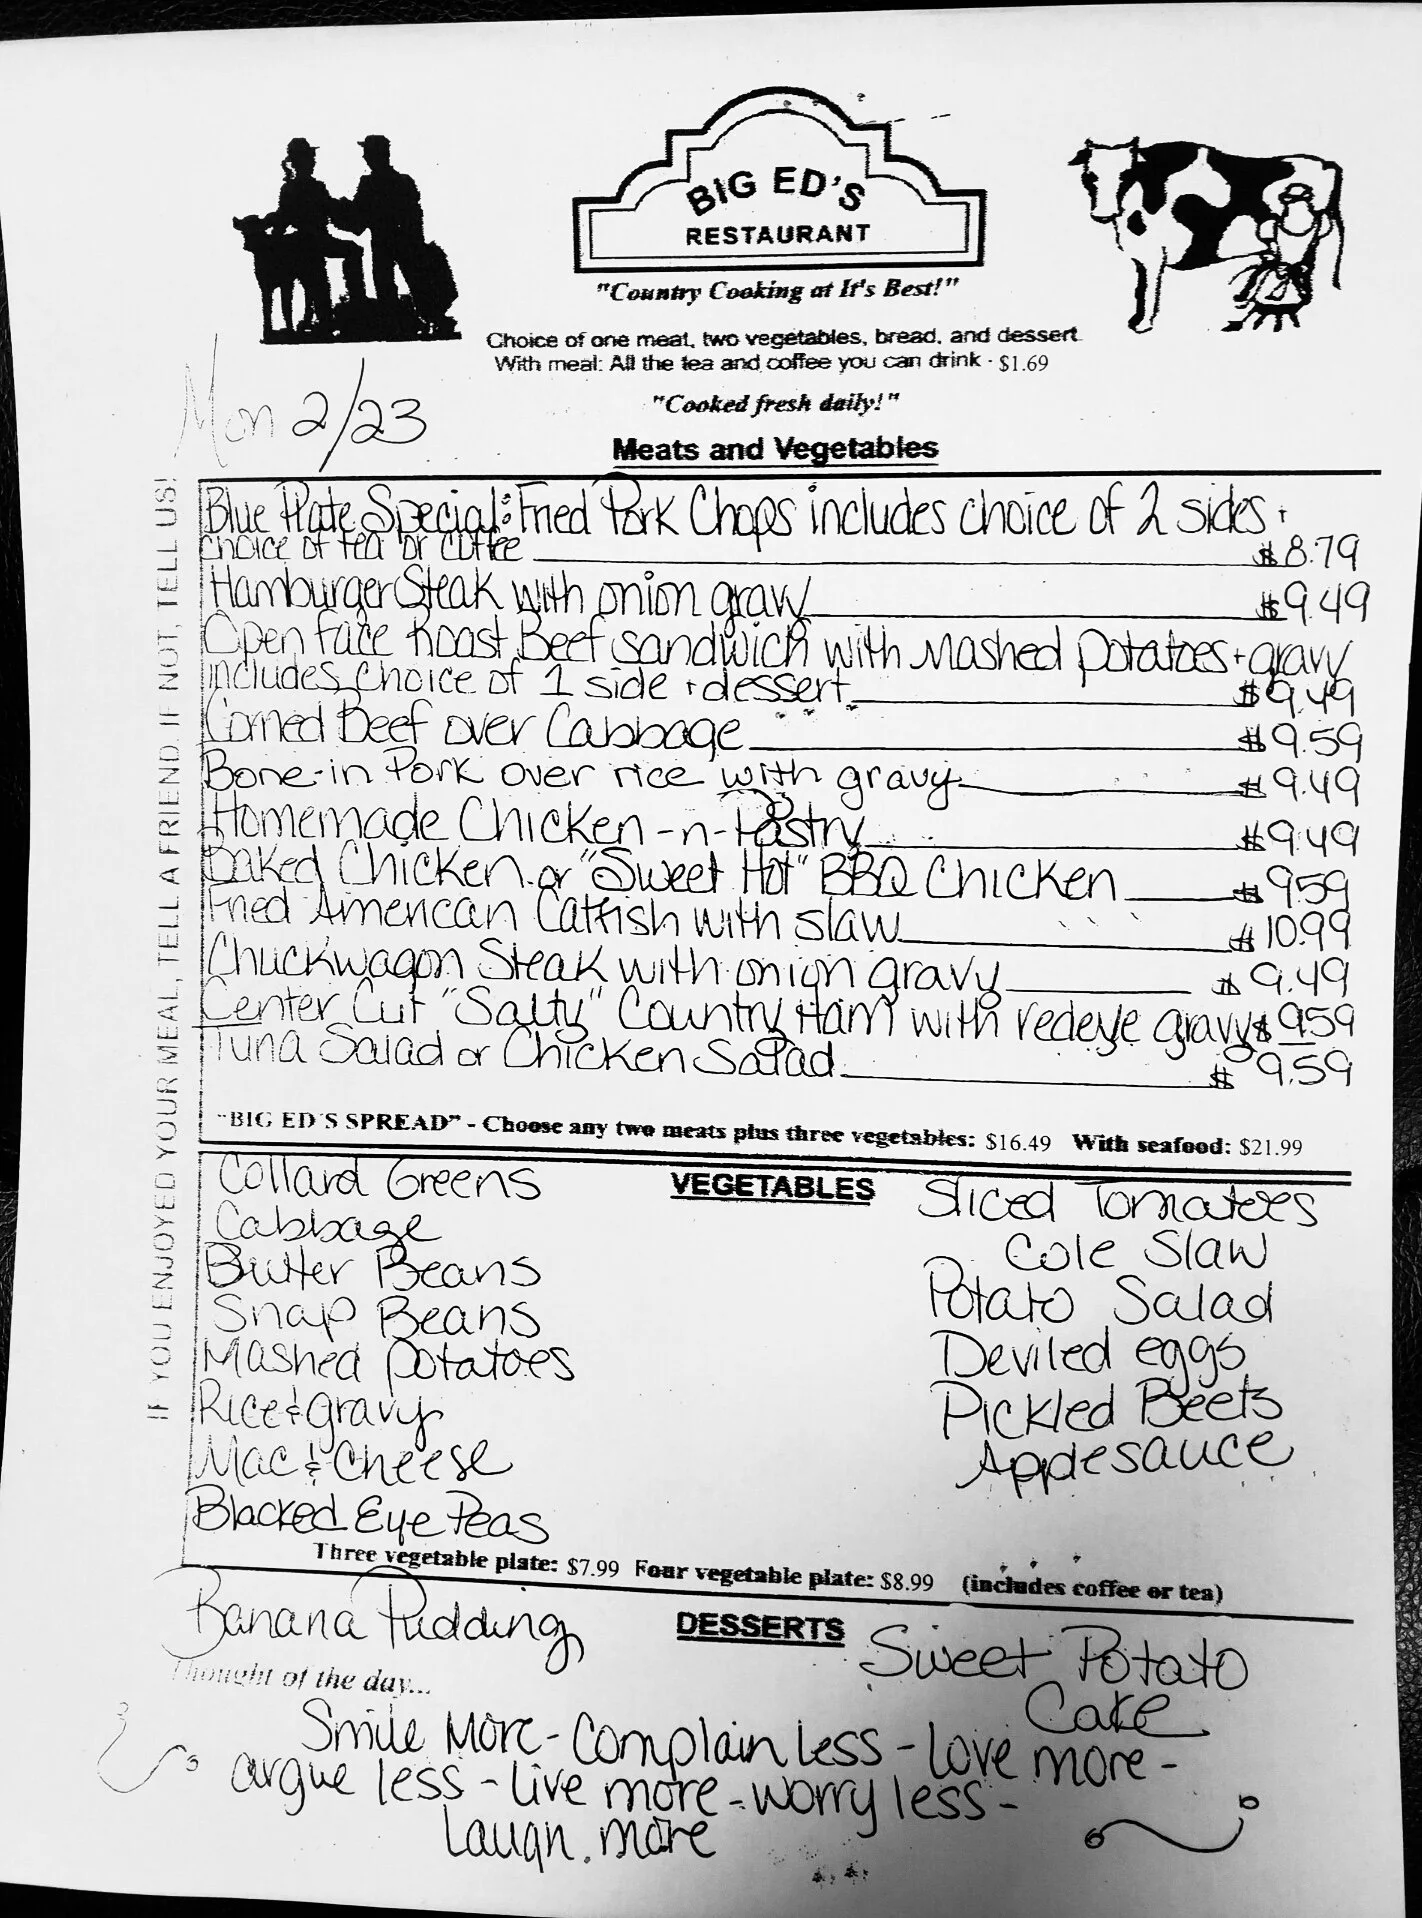 BIG ED'S
RESTAURANT
"Country Cooking at It's Best!"
Choice of one meat, two vegetables, bread, and dessert
With meal: All the tea and coffee you can drink - $1.69
"Cooked fresh daily!"
Mon 2/23
Meats and Vegetables
IF YOU ENJOYED YOUR MEAL, TELL A FRIEND. IF NOT, TELL US!
Blue Plate Special: Fried Pork Chops includes choice of 2 sides +
choice of tea or coffee $8.79
Hamburger Steak with onion gravy $9.49
Open face Roast Beef sandwich with mashed potatoes + gravy
includes choice of 1 side + dessert $9.49
Corned Beef over Cabbage $9.59
Bone-in Pork over rice with gravy $9.49
Homemade Chicken-n-Pastry $9.49
Baked Chicken or "Sweet Hot" BBQ Chicken $9.59
Fried American Catfish with slaw $10.99
Chuckwagon Steak with onion gravy $9.49
Center Cut "Salty" Country Ham with redeye gravy $9.59
Tuna Salad or Chicken Salad $9.59
"BIG ED'S SPREAD" - Choose any two meats plus three vegetables: $16.49 With seafood: $21.99
VEGETABLES
Collard Greens
Cabbage
Butter Beans
Snap Beans
Mashed potatoes
Rice & gravy
Mac & Cheese
Blacked Eye Peas
Sliced Tomatoes
Cole Slaw
Potato Salad
Deviled eggs
Pickled Beets
Applesauce
Three vegetable plate: $7.99 Four vegetable plate: $8.99 (includes coffee or tea)
DESSERTS
Banana Pudding
Sweet Potato
Cake
Thought of the day...
Smile More - Complain Less - Love more -
argue less - live more - worry less -
Laugh more